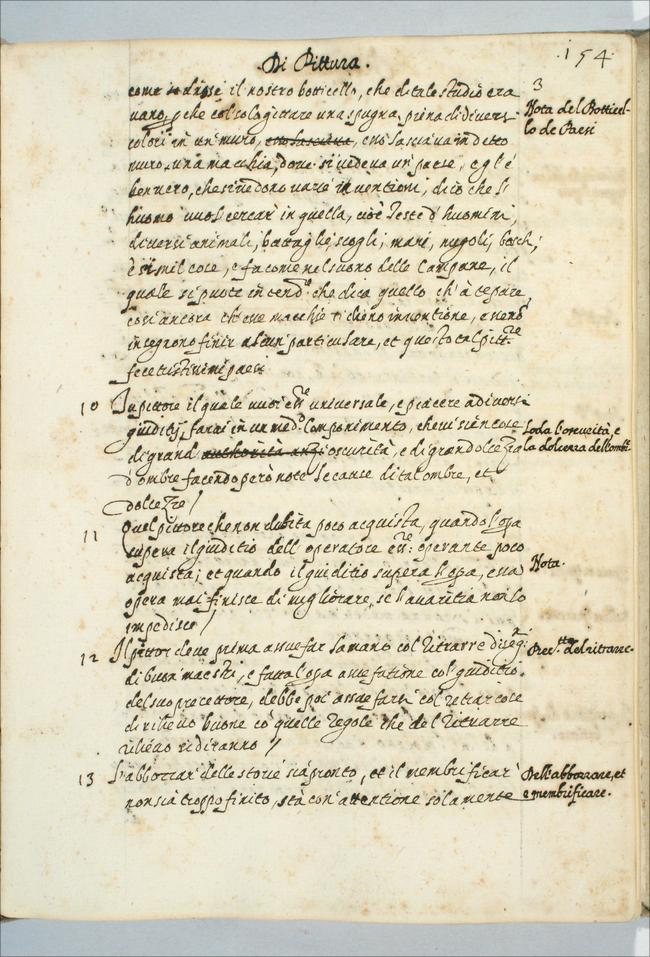 Di Pittura.
154
come disse il nostro botticello, che di tale studio era
vano, che col solo gittare una spugna piena di diversi
colori in un muro, essa lasciava in detto
muro una macchia, dove si vedeva un paese, egl'è
ben vero, che si vedono varie inventioni, dico che l'
huomo vuol cercar in quella, cioè teste d'huomini,
diversi animali, battaglie, scogli, mari, nuvoli, boschi,
e simil cose, e fa come nel suono delle Campane, il
quale si puote intend.e che dica quello ch'à te pare,
così ancora ch'esse macchie ti dieno inventione, e non t'
insegnono finir alcun particulare, et questo tal pitt.re
fece tristissimi paesi
3
Nota del Botticel-
lo de Paesi
10 In pittore il quale vuoi ess.re universale, e piacere a diversi
giuditij farai in un med.o Componimento, che vi sian cose
di grand' oscurità, e di gran dolcezza
d'ombre facendo però note le cause di tal ombre, et
dolcezze/
Loda l'oscurità, e
la dolcezza dell'ombr.
11 Quel pittore che non dubita poco acquista, quando l'opa
supera il giuditio dell'operatore operante poco
acquista; et quando il giuditio supera l'opa, essa
opera mai finisce di migliorare, se l'avaritia non lo
impedisce/
Nota.
12 Il pittor deve prima assuefar la mano col ritrarre disegni
di buoni maestri, e fatta l'opa assuefatione col giuditio
del suo precettore, debbe poi assuefarsi col ritrar cose
di rilievo buone cò quelle regole che del ritrarre
rilievo si diranno/
Prec.tto del ritrarre.
13 L'abbozzar delle storie sia pronto, et il membrificar
non sia troppo finito, stà con attentione solamente
Dell'abbozzare, et
e membrificare.